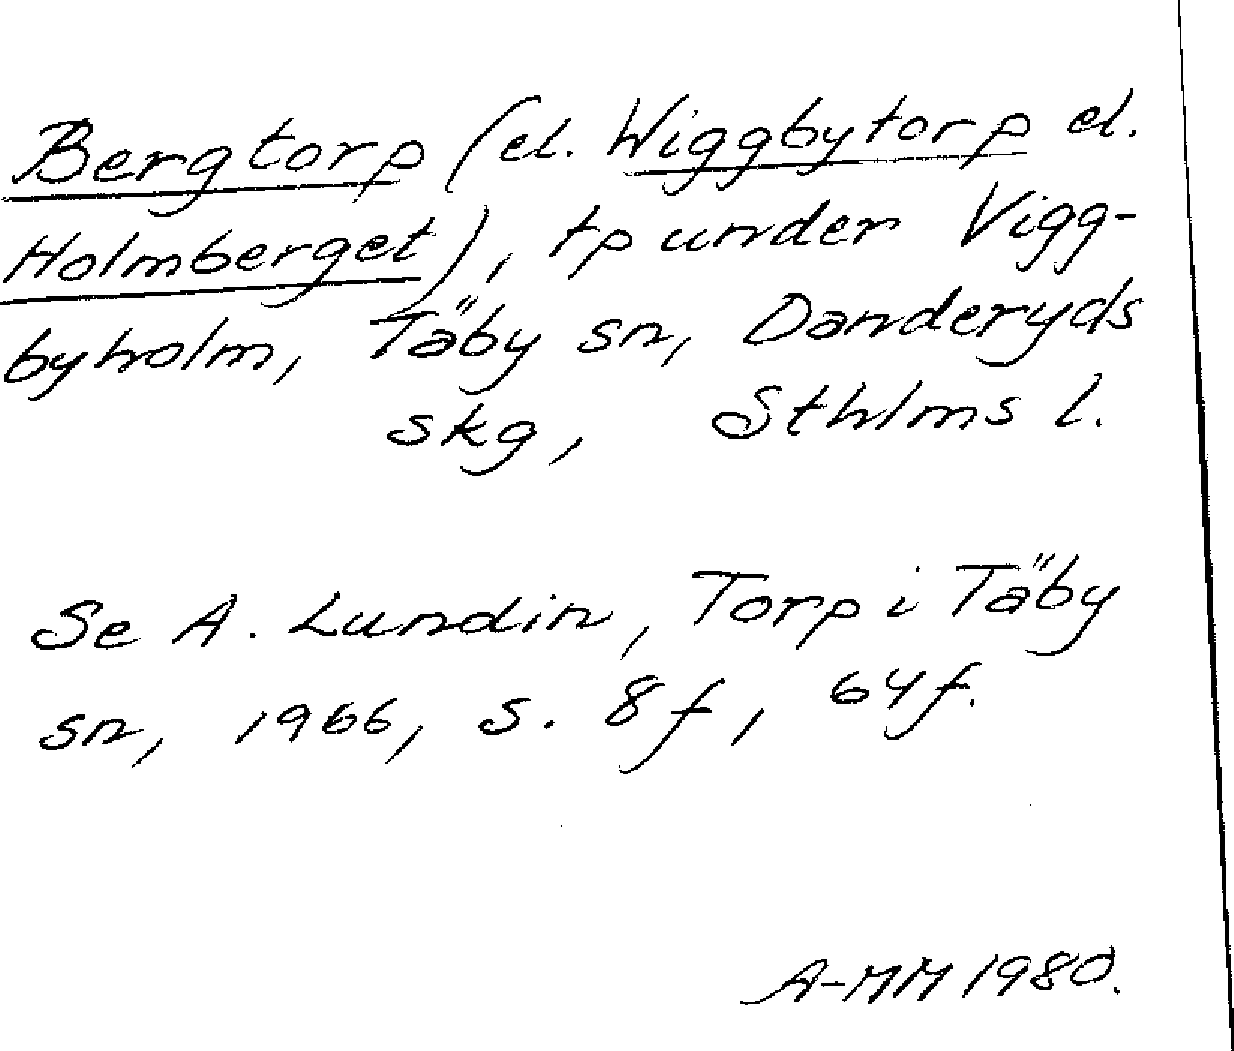 Bergtorp (el. Wiggbytorp el.
Holmberget), tp under Vigg-
byholm, Täby sn, Danderyds
skg, Sthlms l.
Se A. Lundin, Torp i Täby
sn, 1966, s. 8f, 64f.
A-MM 1980.